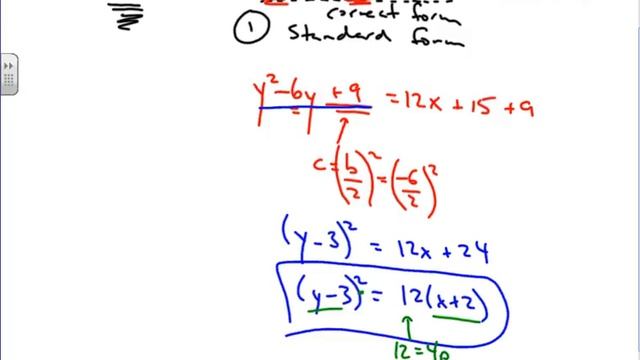 correct form
① Standard form
y² - 6y + 9 = 12x + 15 + 9
c = (b/2)² = (-6/2)²
(y - 3)² = 12x + 24
(y - 3)² = 12(x + 2)
12 = 4p